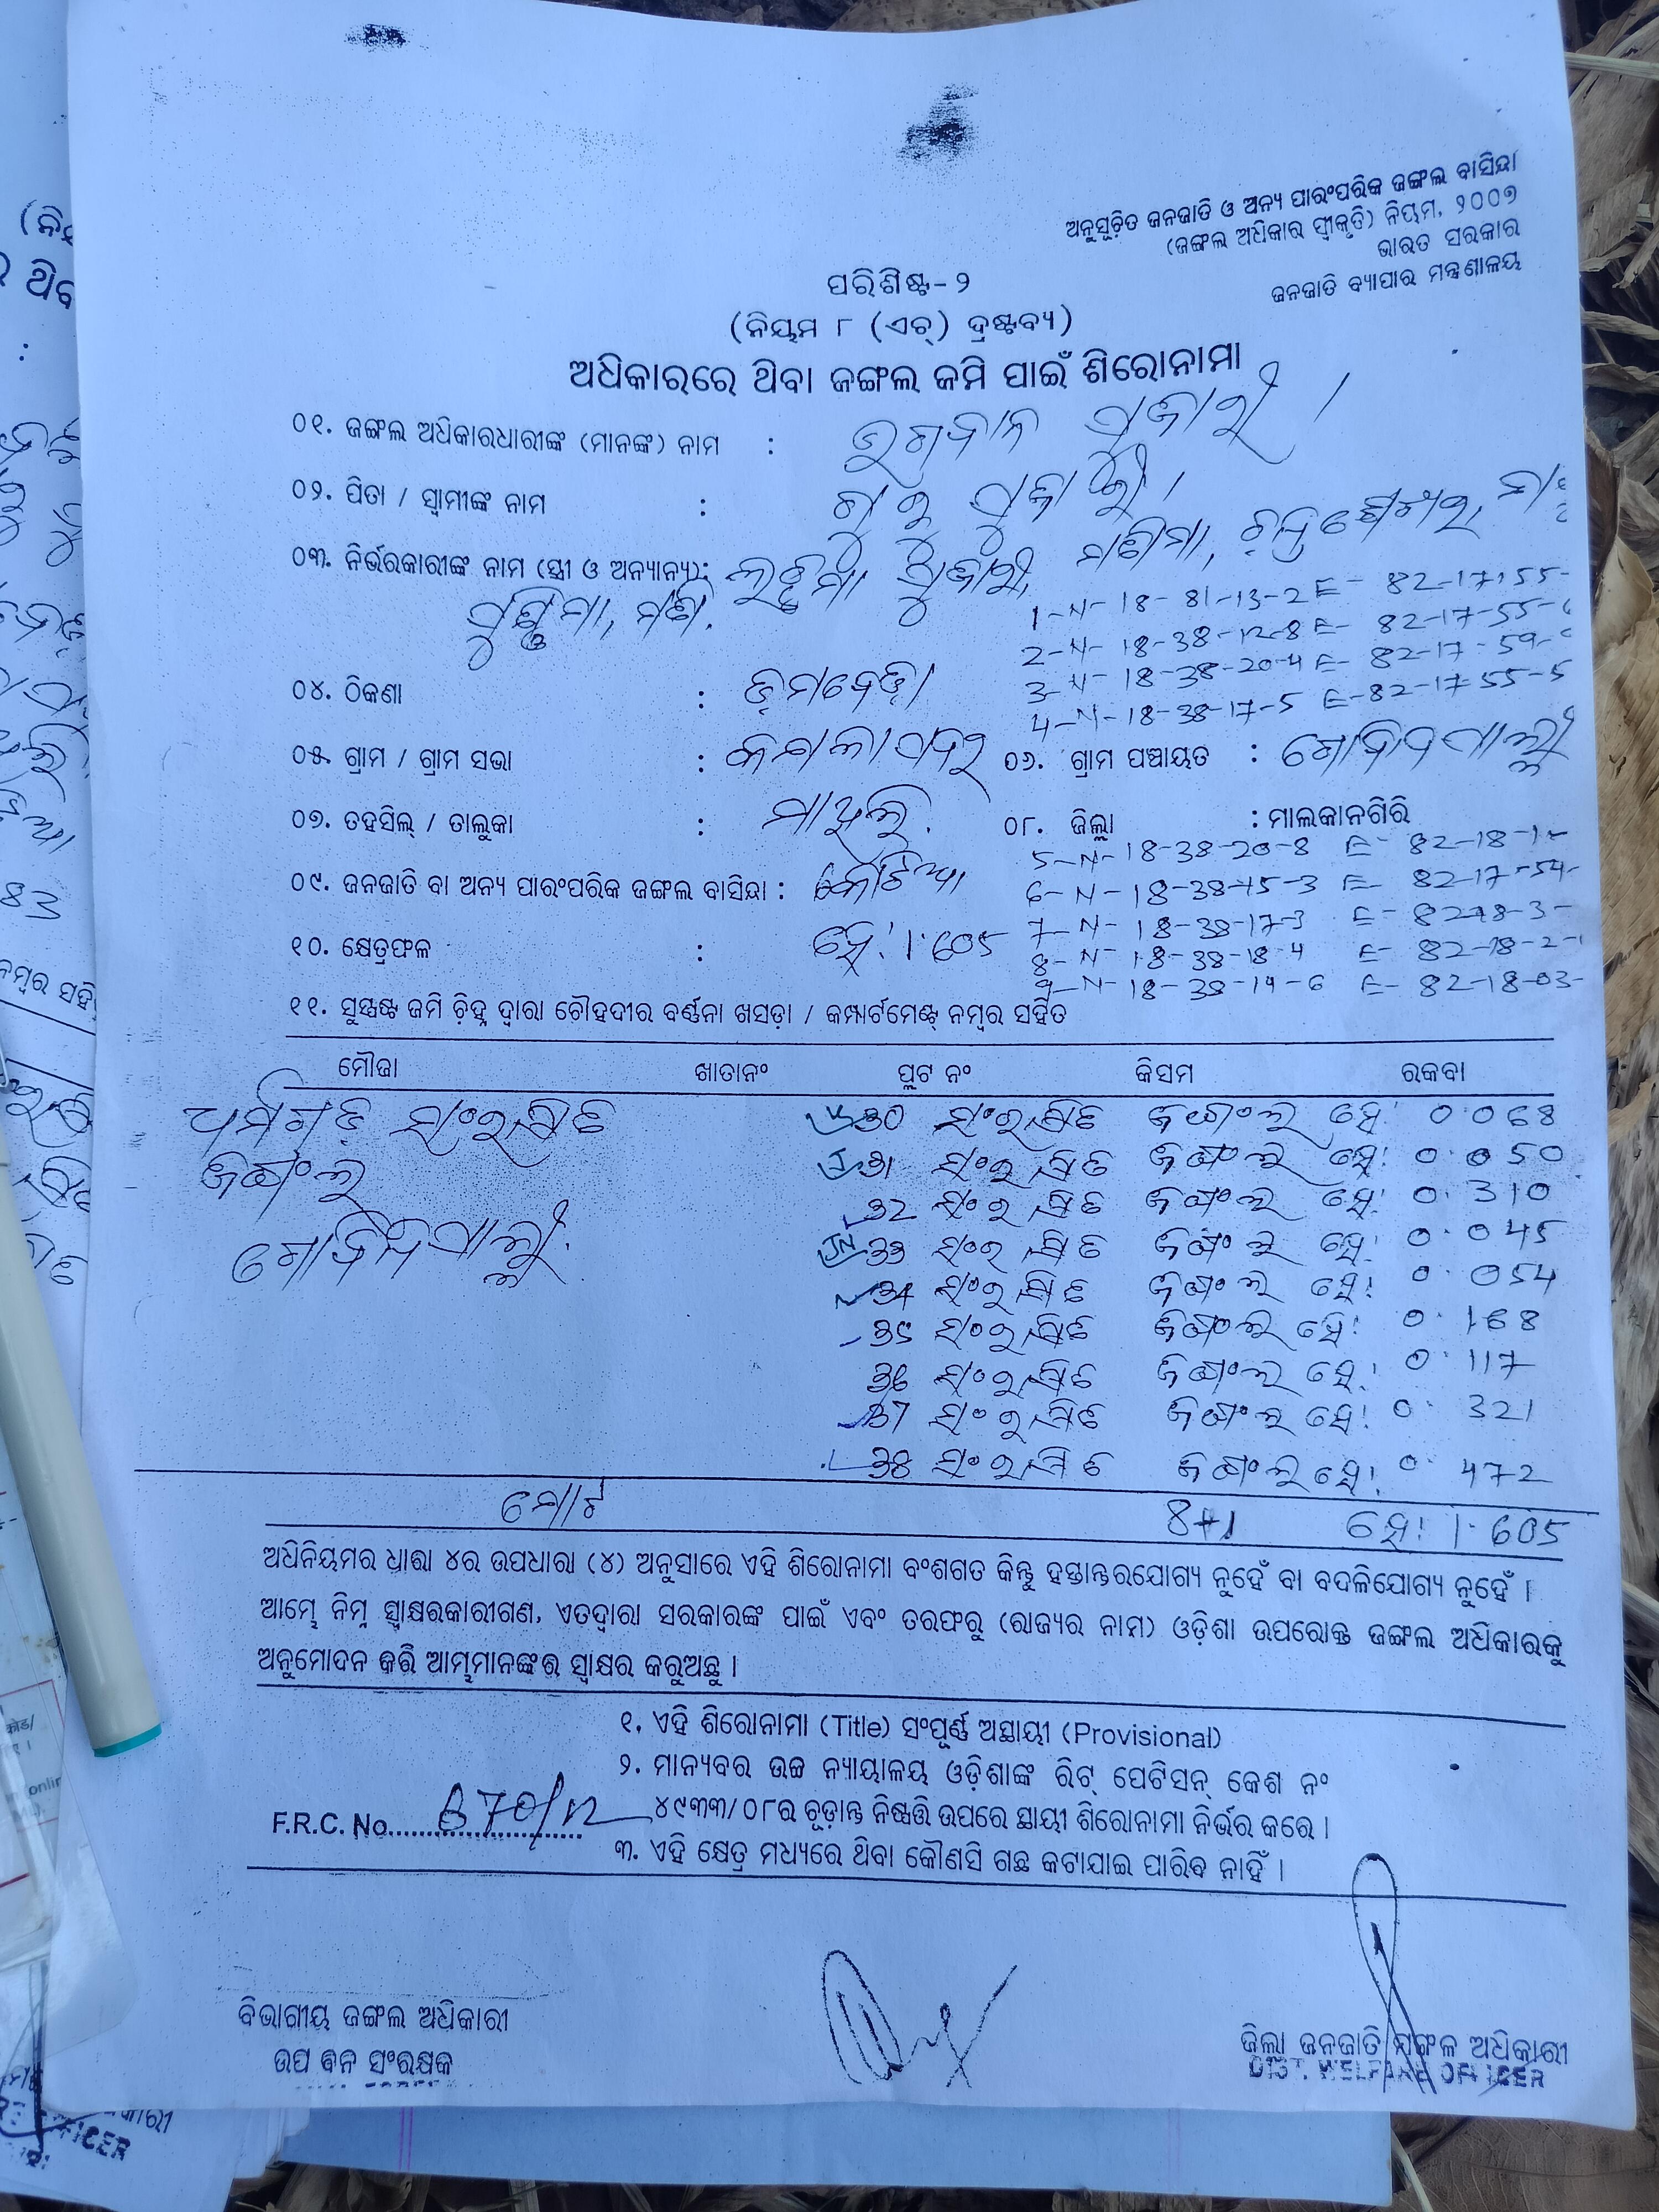 ଅନୁସୂଚିତ ଜନଜାତି ଓ ଅନ୍ୟ ପାରଂପରିକ ଜଙ୍ଗଲ ବାସିନ୍ଦା
(ଜଙ୍ଗଲ ଅଧିକାର ସ୍ୱୀକୃତି) ନିୟମ, ୨୦୦୭
ଭାରତ ସରକାର
ଜନଜାତି ବ୍ୟାପାର ମନ୍ତ୍ରଣାଳୟ
ପରିଶିଷ୍ଟ-୨
(ନିୟମ ୮ (ଏଚ୍) ଦ୍ରଷ୍ଟବ୍ୟ)
ଅଧିକାରରେ ଥିବା ଜଙ୍ଗଲ ଜମି ପାଇଁ ଶିରୋନାମା
୦୧. ଜଙ୍ଗଲ ଅଧିକାରଧାରୀଙ୍କ (ମାନଙ୍କ) ନାମ : ଭଗବାନ ପୁଜାରୀ ।
୦୨. ପିତା / ସ୍ୱାମୀଙ୍କ ନାମ : ଗୁରୁ ପୁଜାରୀ ।
୦୩. ନିର୍ଭରକାରୀଙ୍କ ନାମ (ସ୍ତ୍ରୀ ଓ ଅନ୍ୟାନ୍ୟ): ଲଛମା ପୁଜାରୀ,
1-N- 18- 81-13-2 E- 82-17-55-
2-N- 18-38-12-8 E- 82-17-55-
3-N- 18-38-20-4 E- 82-17-59-
୦୪. ଠିକଣା : ଡୁମବେଡ଼ା
4-N-18-38-17-5 E-82-17-55-5
୦୫. ଗ୍ରାମ / ଗ୍ରାମ ସଭା : ୦୬. ଗ୍ରାମ ପଞ୍ଚାୟତ : ଗୋବିନ୍ଦପାଲ୍ଲୀ
୦୭. ତହସିଲ୍ / ତାଲୁକା : ମାଥିଲି. ୦୮. ଜିଲ୍ଲା : ମାଲକାନଗିରି
5-N-18-38-20-8 E- 82-18-1-
୦୯. ଜନଜାତି ବା ଅନ୍ୟ ପାରଂପରିକ ଜଙ୍ଗଲ ବାସିନ୍ଦା :
6-N-18-38-15-3 E- 82-17-54-
7-N-18-38-17-3 E- 82-18-3-
୧୦. କ୍ଷେତ୍ରଫଳ : ହେ: 1.605
8-N-18-38-18-4 E- 82-18-2-
9-N-18-38-14-6 E- 82-18-03-
୧୧. ସୁସ୍ପଷ୍ଟ ଜମି ଚିହ୍ନ ଦ୍ୱାରା ଚୌହଦୀର ବର୍ଣ୍ଣନା ଖସଡ଼ା / କମ୍ପାର୍ଟମେଣ୍ଟ୍ ନମ୍ବର ସହିତ
ମୌଜା ଖାତାନଂ ପ୍ଲଟ ନଂ କିସମ ରକବା
ଧର୍ମଗଡ଼ ସଂରକ୍ଷିତ 30 ସଂରକ୍ଷିତ ଜଙ୍ଗଲ ହେ: 0.068
ଜଙ୍ଗଲ 31 ସଂରକ୍ଷିତ ଜଙ୍ଗଲ ହେ: 0.050
32 ସଂରକ୍ଷିତ ଜଙ୍ଗଲ ହେ: 0.310
ଗୋବିନ୍ଦପାଲ୍ଲୀ. 33 ସଂରକ୍ଷିତ ଜଙ୍ଗଲ ହେ: 0.045
34 ସଂରକ୍ଷିତ ଜଙ୍ଗଲ ହେ: 0.054
35 ସଂରକ୍ଷିତ ଜଙ୍ଗଲ ହେ: 0.168
36 ସଂରକ୍ଷିତ ଜଙ୍ଗଲ ହେ: 0.117
37 ସଂରକ୍ଷିତ ଜଙ୍ଗଲ ହେ: 0.321
38 ସଂରକ୍ଷିତ ଜଙ୍ଗଲ ହେ: 0.472
ମୋଟ 8+1 ହେ: 1.605
ଅଧିନିୟମର ଧାରା ୪ର ଉପଧାରା (୪) ଅନୁସାରେ ଏହି ଶିରୋନାମା ବଂଶଗତ କିନ୍ତୁ ହସ୍ତାନ୍ତରଯୋଗ୍ୟ ନୁହେଁ ବା ବଦଳିଯୋଗ୍ୟ ନୁହେଁ ।
ଆମ୍ଭେ ନିମ୍ନ ସ୍ୱାକ୍ଷରକାରୀଗଣ, ଏତଦ୍ୱାରା ସରକାରଙ୍କ ପାଇଁ ଏବଂ ତରଫରୁ (ରାଜ୍ୟର ନାମ) ଓଡ଼ିଶା ଉପରୋକ୍ତ ଜଙ୍ଗଲ ଅଧିକାରକୁ
ଅନୁମୋଦନ କରି ଆମ୍ଭମାନଙ୍କର ସ୍ୱାକ୍ଷର କରୁଅଛୁ ।
୧. ଏହି ଶିରୋନାମା (Title) ସଂପୂର୍ଣ୍ଣ ଅସ୍ଥାୟୀ (Provisional)
୨. ମାନ୍ୟବର ଉଚ୍ଚ ନ୍ୟାୟାଳୟ ଓଡ଼ିଶାଙ୍କ ରିଟ୍ ପେଟିସନ୍ କେଶ ନଂ
F.R.C. No. 870/12 ୪୯୩୩/୦୮ର ଚୂଡ଼ାନ୍ତ ନିଷ୍ପତ୍ତି ଉପରେ ସ୍ଥାୟୀ ଶିରୋନାମା ନିର୍ଭର କରେ ।
୩. ଏହି କ୍ଷେତ୍ର ମଧ୍ୟରେ ଥିବା କୌଣସି ଗଛ କଟାଯାଇ ପାରିବ ନାହିଁ ।
ବିଭାଗୀୟ ଜଙ୍ଗଲ ଅଧିକାରୀ
ଉପ ବନ ସଂରକ୍ଷକ
ଜିଲ୍ଲା ଜନଜାତି ମଙ୍ଗଳ ଅଧିକାରୀ
DIST. WELFARE OFFICER